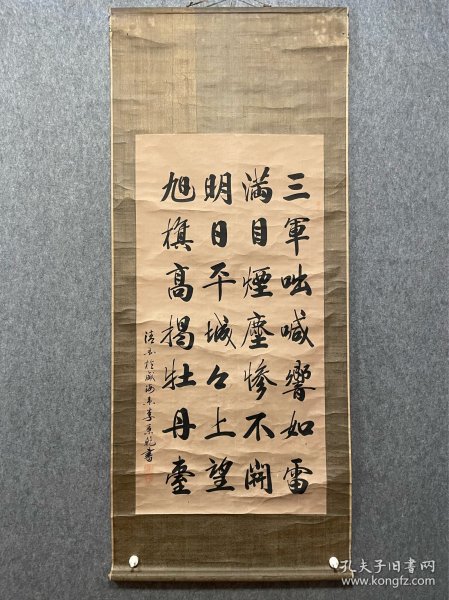 三軍吶喊響如雷
滿目煙塵慘不開
明日平城々上望
旭旗高揭牡丹臺
書
孔夫子旧书网
www.kongfz.com